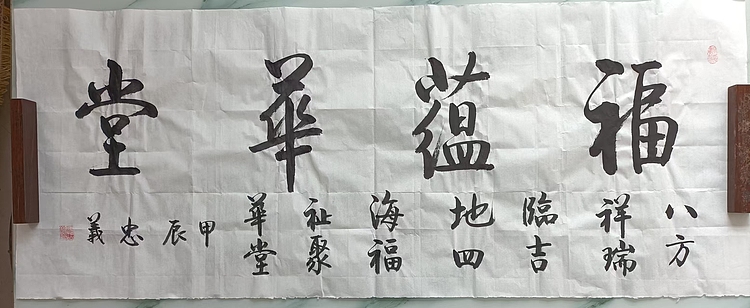 福蘊華堂
八方
祥瑞
臨吉
地四
海福
祉聚
華堂
甲辰
忠義